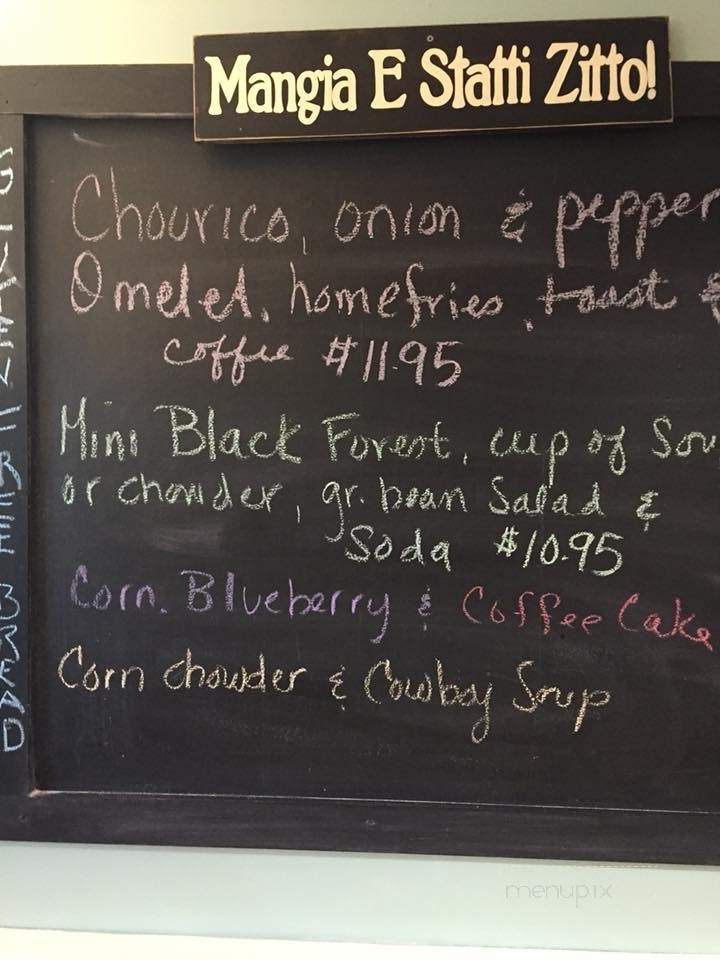 Mangia E Statti Zitto!
Chourico, onion & pepper
Omelet, homefries, toast &
coffee $11.95
Mini Black Forest, cup of Sou
or chowder, gr. bean Salad &
Soda $10.95
Corn. Blueberry & Coffee Cake
Corn chowder & Cowboy Soup
BREAD
menupix